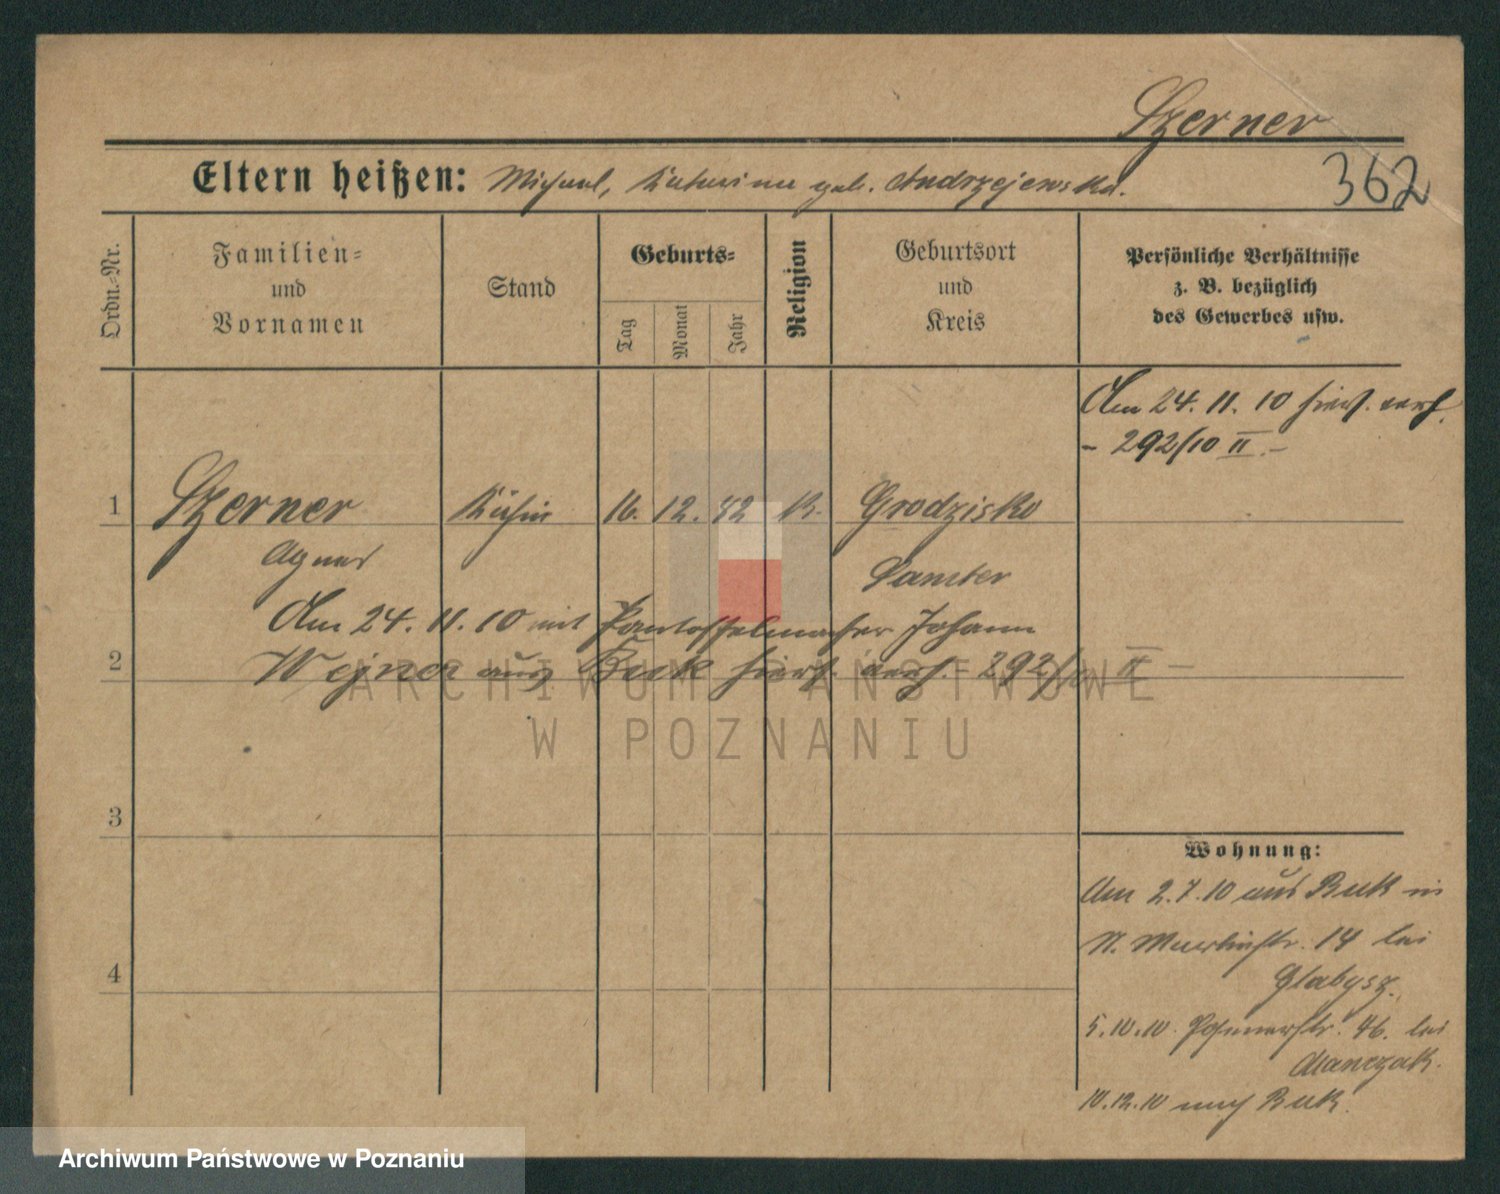 Szerner
362
Eltern heißen: Michael, Katharina geb. Andrzejewska.
Ordn.-Nr.
Familien- und Vornamen
Stand
Geburts-
Tag
Monat
Jahr
Religion
Geburtsort und Kreis
Persönliche Verhältnisse
z. B. bezüglich
des Gewerbes usw.
Am 24. 11. 10 hier verh.
- 292/10 II. -
1 Szerner Köchin 16. 12. 82 k. Grodzisko
Agnes Samter
Am 24. 11. 10 mit Pantoffelmacher Johann
2 Wejner aus Buk hier verh. 292/10 II -
3
Wohnung:
Am 2.7.10 aus Buk in
St. Martinstr. 14 bei
4
Glabysz.
5.10.10 Posenerstr. 46. bei
Manczak.
10.12.10 nach Buk.
ARCHIWUM PAŃSTWOWE
W POZNANIU
Archiwum Państwowe w Poznaniu